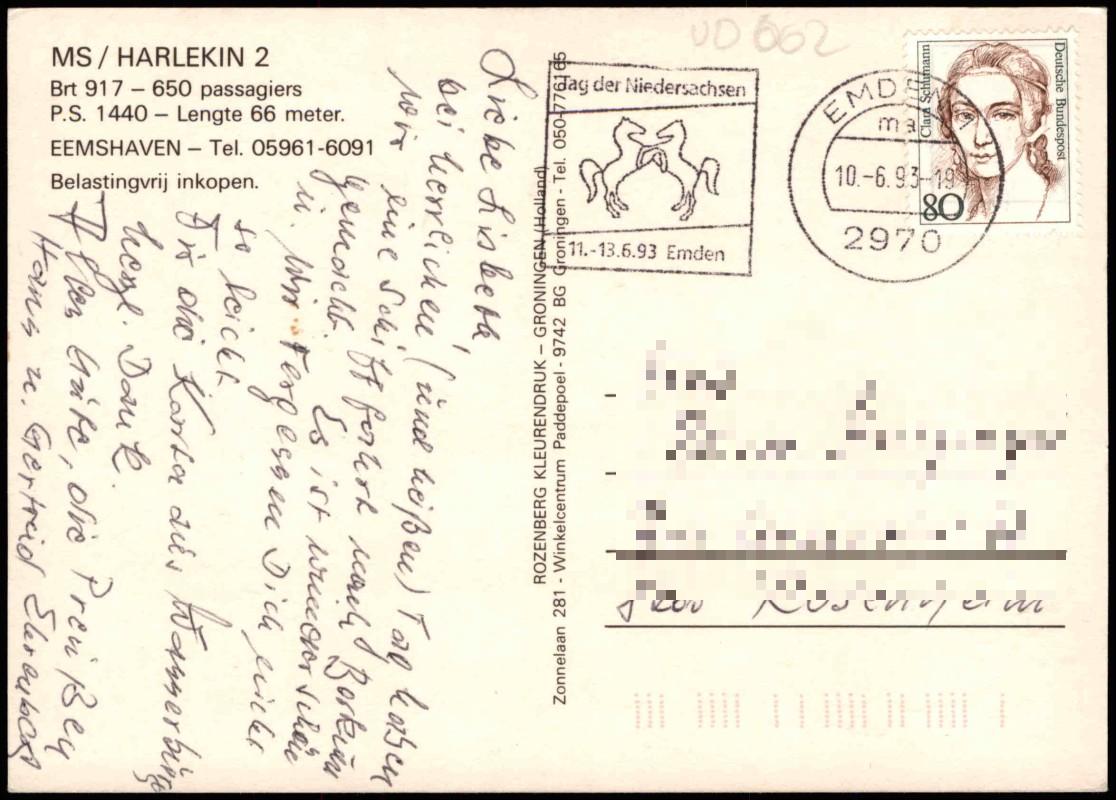 MS / HARLEKIN 2
Brt 917 – 650 passagiers
P.S. 1440 – Lengte 66 meter.
EEMSHAVEN – Tel. 05961-6091
Belastingvrij inkopen.
Liebe Lisbeth,
bei herrlichem (und heißem) Tag haben
wir eine Schiffahrt nach Borkum
gemacht. Es ist wunderschön
u. Wir vergessen Dich nicht
so leicht.
Für die Karte aus Wasserburg
herzl. Dank.
Alles Gute, die Preißen
Hans u. Gertrud
ROZENBERG KLEURENDRUK – GRONINGEN (Holland)
Zonnelaan 281 - Winkelcentrum Paddepoel - 9742 BG Groningen - Tel. 050-776165
UD 662
Tag der Niedersachsen
11.-13.6.93 Emden
EMDEN
ma
10.-6.93-19
2970
Clara Schumann
Deutsche Bundespost
80
Rosenheim